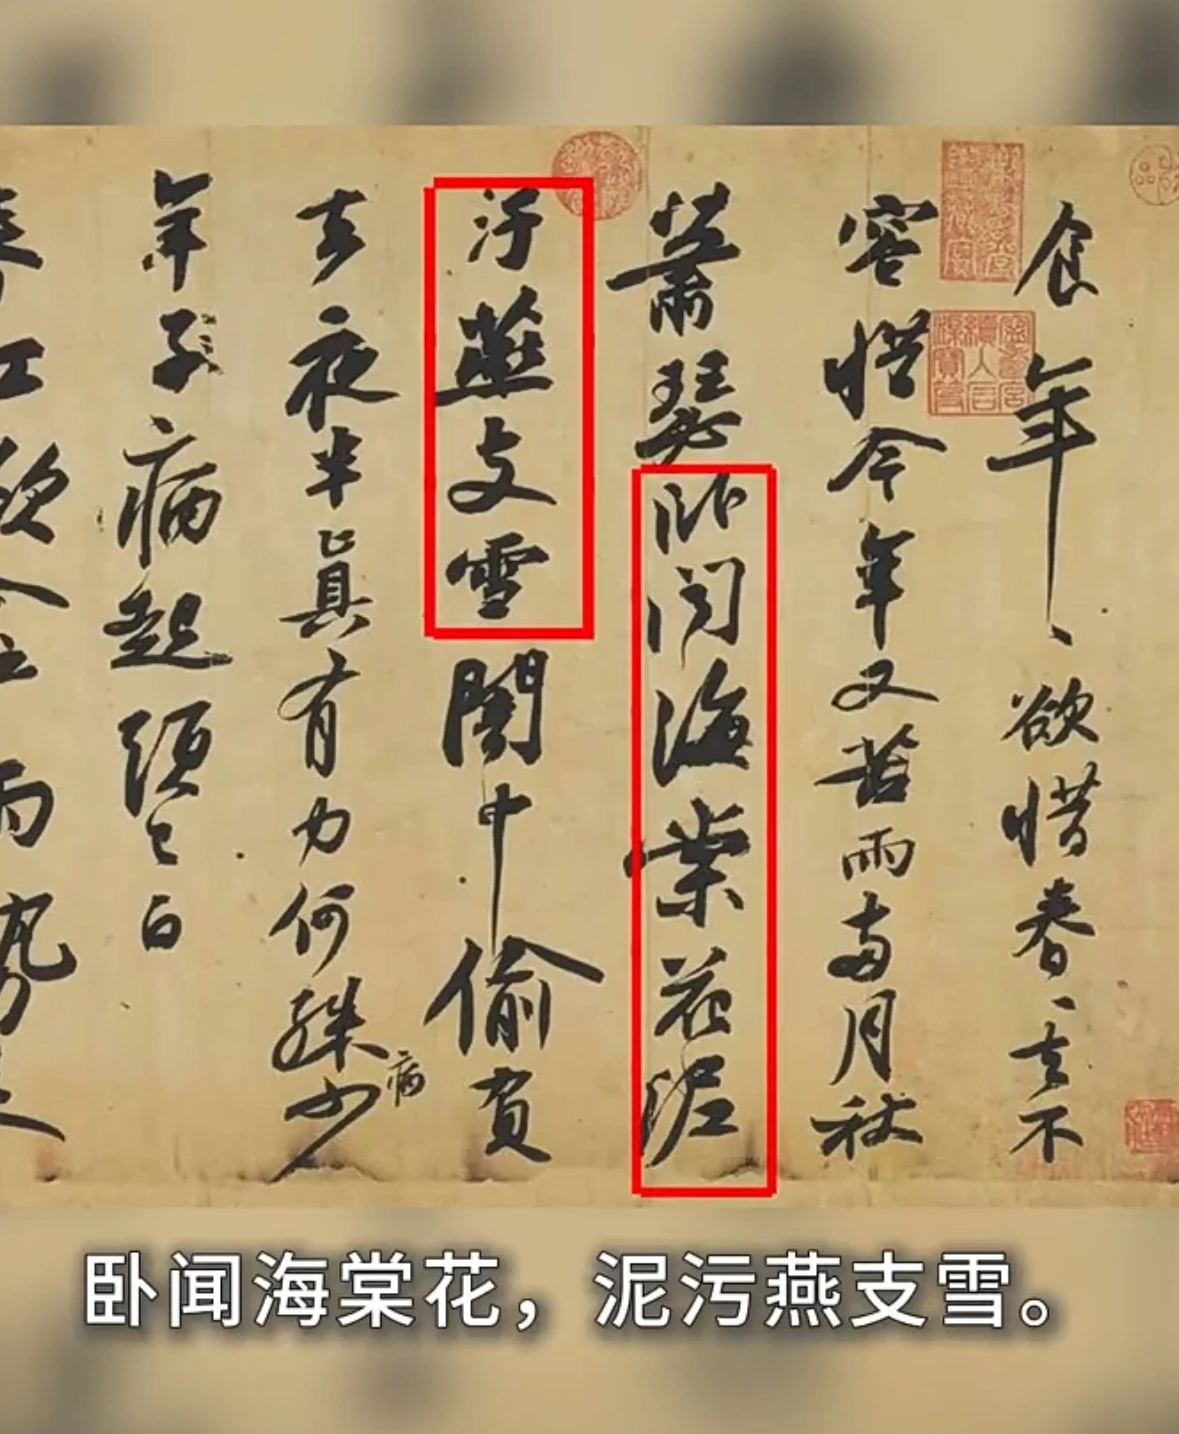 食年年欲惜春春去不
容惜今年又苦雨两月秋
萧瑟卧闻海棠花泥
污燕支雪闇中偷負
去夜半真有力何殊少
年子病起頭已白
病
卧闻海棠花，泥污燕支雪。